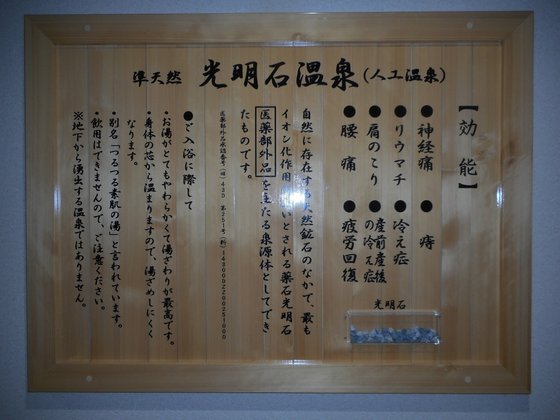 準天然 光明石温泉(人工温泉)
【効能】
●神経痛 ●痔
●リウマチ ●冷え症
●肩のこり ●産前産後の冷え症
●腰痛 ●疲労回復
光明石
自然に存在する天然鉱石のなかで、最も
イオン化作用が強いとされる薬石光明石
医薬部外品を主たる泉源体としてでき
たものです。
●ご入浴に際して
・お湯がとてもやわらかくて湯ざわりが最高です。
・身体の芯から温まりますので、湯ざめしにくく
なります。
・別名「つるつる素肌の湯」と言われています。
・飲用はできませんので、ご注意ください。
※地下から湧出する温泉ではありません。